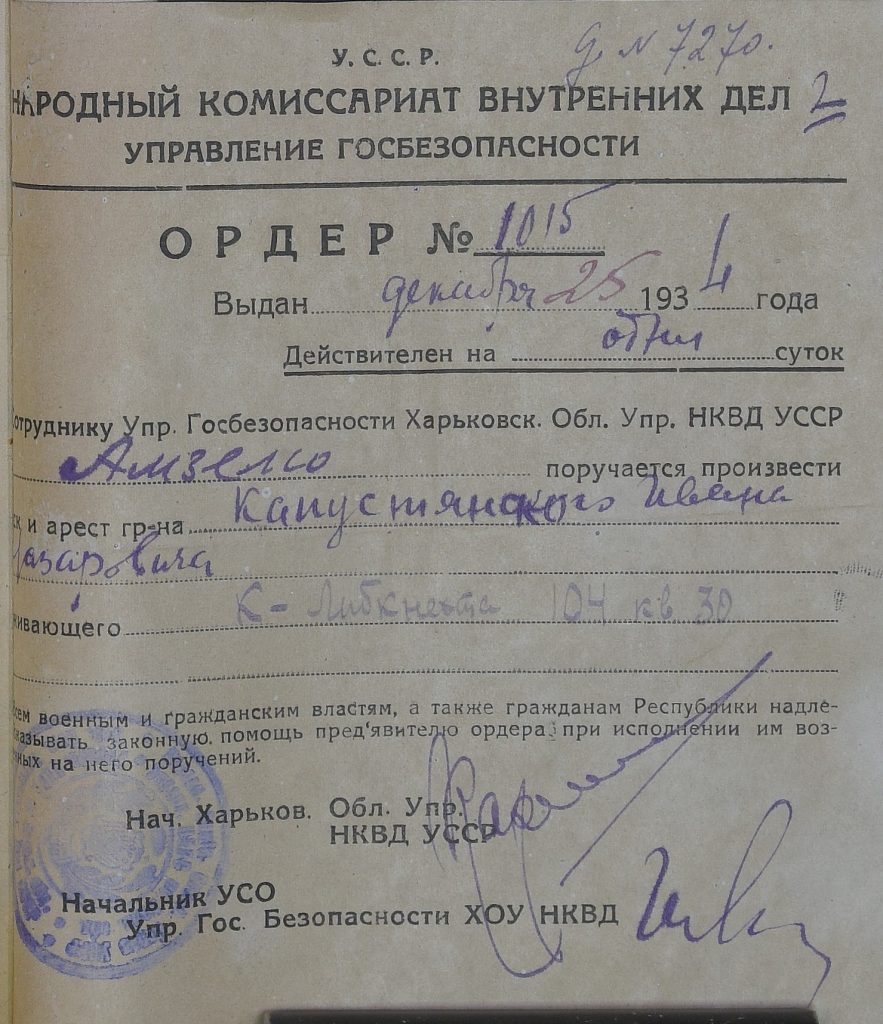 У. С. С. Р.
Д. N 7270.
НАРОДНЫЙ КОМИССАРИАТ ВНУТРЕННИХ ДЕЛ 2
УПРАВЛЕНИЕ ГОСБЕЗОПАСНОСТИ
ОРДЕР № 1015
Выдан декабря 25 1934 года
Действителен на суток
отруднику Упр. Госбезопасности Харьковск. Обл. Упр. НКВД УССР
поручается произвести
ск и арест гр-на Капустянского Ивана
Назаровича
живающего К-Либкнехта 104 кв 30
сем военным и гражданским властям, а также гражданам Республики надле-
казывать законную помощь пред'явителю ордера при исполнении им воз-
ных на него поручений.
Нач. Харьков. Обл. Упр.
НКВД УССР
Начальник УСО
Упр. Гос. Безопасности ХОУ НКВД